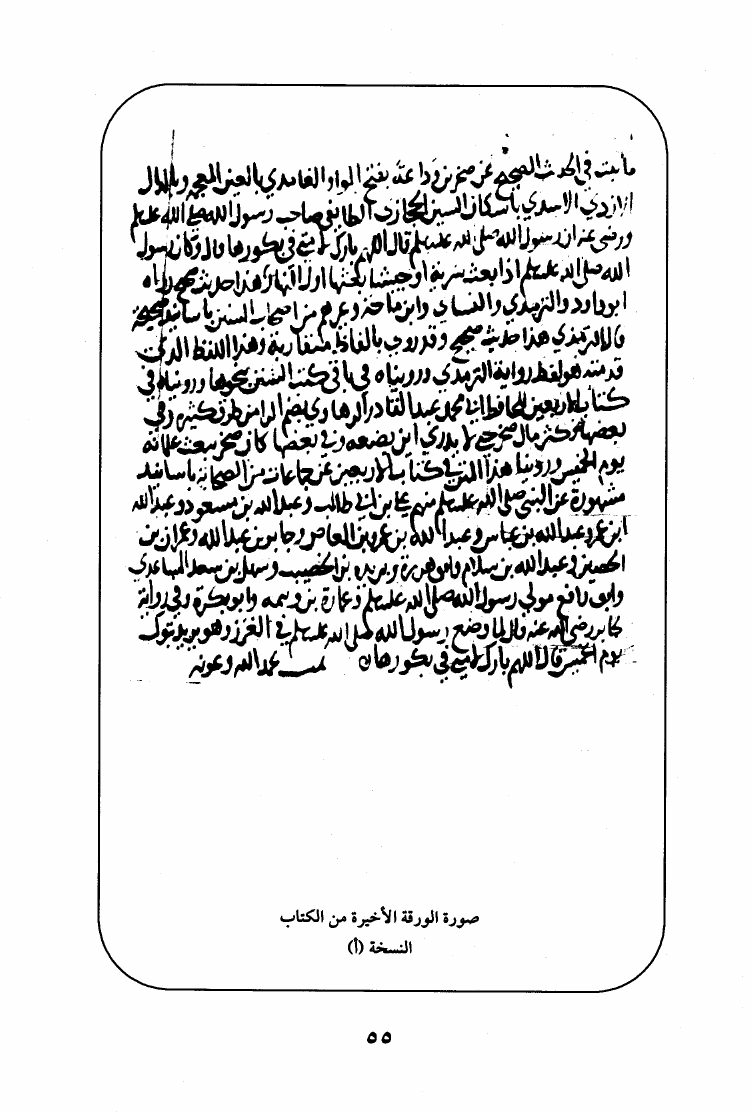 ما ثبت في الحديث الصحيح عن صخر بن وداعة بفتح الواو الغامدي بالغين المعجمة والدال
الازدي الاسدي باسكان السين الحجازي الطايفي صاحب رسول الله صلى الله عليه وسلم
ورضي عنه ان رسول الله صلى الله عليه وسلم قال اللهم بارك لامتي في بكورها قال وكان رسول
الله صلى الله عليه وسلم اذا بعث سرية او جيشا بعثها اول النهار هذا حديث صحيح رواه
ابو داود والترمذي والنساي وابن ماجه وغيرهم من اصحاب السنن باسانيد صحيحة
قال الترمذي هذا حديث صحيح وقد روي بالفاظ متقاربة وهذا اللفظ الذي
قدمته هو لفظ رواية الترمذي ورويناه في باقي كتب السنن بنحوها ورويناه في
كتاب الاربعين للحافظ ابي محمد عبد القادر الرهاوي بضم الرا من طرق كثيرة وفي
بعضها فكثر مال صخر حتى لا يدري اين يضعه وفي بعضها كان صخر يبعث غلمانه
يوم الخميس وروينا هذا الذي في كتاب الاربعين عن جماعات من الصحابة باسانيد
مشهورة عن النبي صلى الله عليه وسلم منهم علي بن ابي طالب وعبد الله بن مسعود وعبد الله
ابن عمر وعبد الله بن عباس وعبد الله بن عمرو بن العاص وجابر بن عبد الله وعمران بن
الحصين وعبد الله بن سلام وابو هريرة وبريدة بن الحصيب وسهل بن سعد الساعدي
وابو رافع مولى رسول الله صلى الله عليه وسلم وعمارة بن وثيمه وابو بكرة وفي رواية
جابر رضي الله عنه قال لما وضع رسول الله صلى الله عليه وسلم في الغرز وهو يريد تبوك
يوم الخميس قال اللهم بارك لامتي في بكورها تمت بحمد الله وعونه
صورة الورقة الأخيرة من الكتاب
النسخة (أ)
٥٥